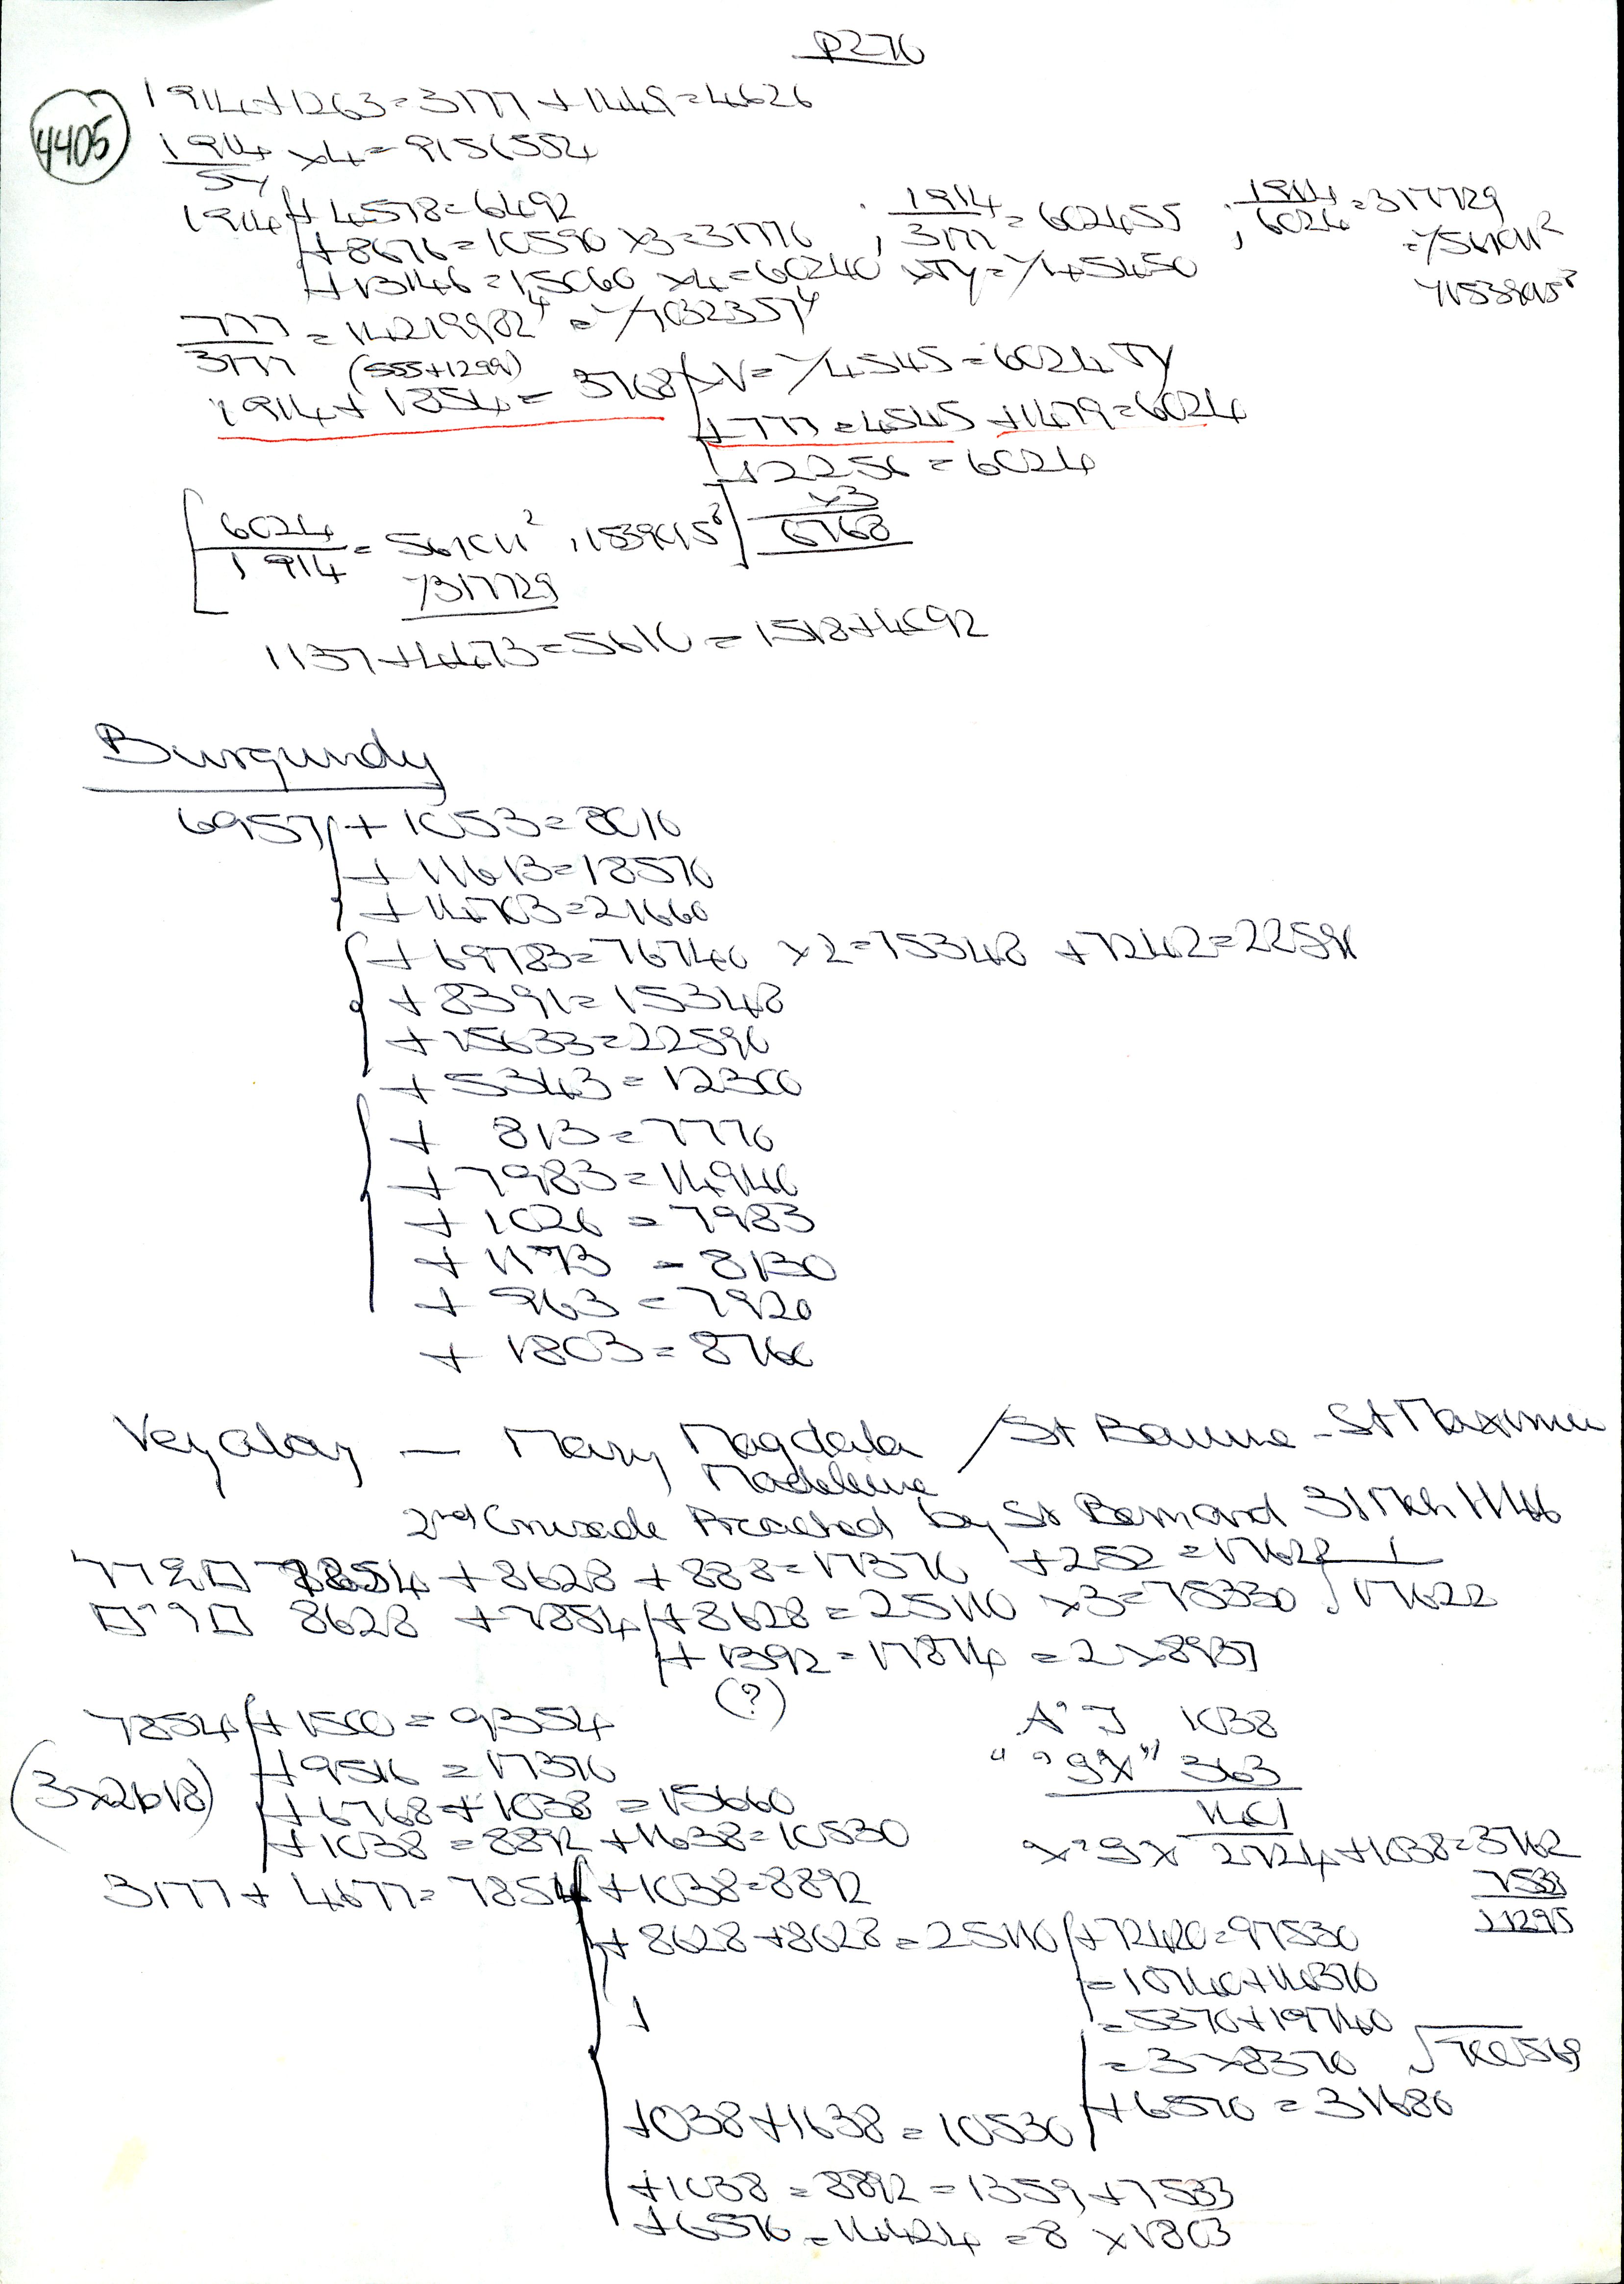 P270
4405
1914+1263=3177+1449=4626
1914/57 ×4=9156554
1914 +4578=6492
+8676=10590 ×3=31770 ; 1914/3177=602455 ; 1914/6024=317729
+13146=15060 ×4=60240
777/3177
(555+1299)
1914+1854=3768 ×V=/4545=6024 TY
+777=4545+1479=6024
+2256=6024
×3
6768
6024/1914
/317729
1137+4473=5610=1518+4092
Burgundy
6957 +1053=8010
+11613=18570
+14703=21660
+69783=76740 ×2=15348 +7242=22590
+8391=15348
+15633=22590
+5343=12300
+ 813=7770
+7983=14940
+1026=7983
+1173=8130
+ 963=7920
+1803=8760
Vezalay — Mary Magdala / St Baume - St Maximin
Madeleine
2nd Crusade Preached by St Bernard 31 Mch 1146
7854+8628+888=17370 +252=17622
8628 +7854 +8628=25110 ×3=75330 √17622
+1392=17874=2×8937
(?)
7854 +1500=9354
+9516=17370
(3×2618) +6768+1038=15660
+1038=8892+1638=10530
1038
363
1401
2724+1038=3762
7533
11295
3177+4677=7854 +1038=8892
+8628+8628=25110 +72420=97530
=10740+14370
=5370+19740
=3×8370 √700569
+6570=31680
+1038+1638=10530
+1038=8892=1359+7533
+6570=14424=8×1803